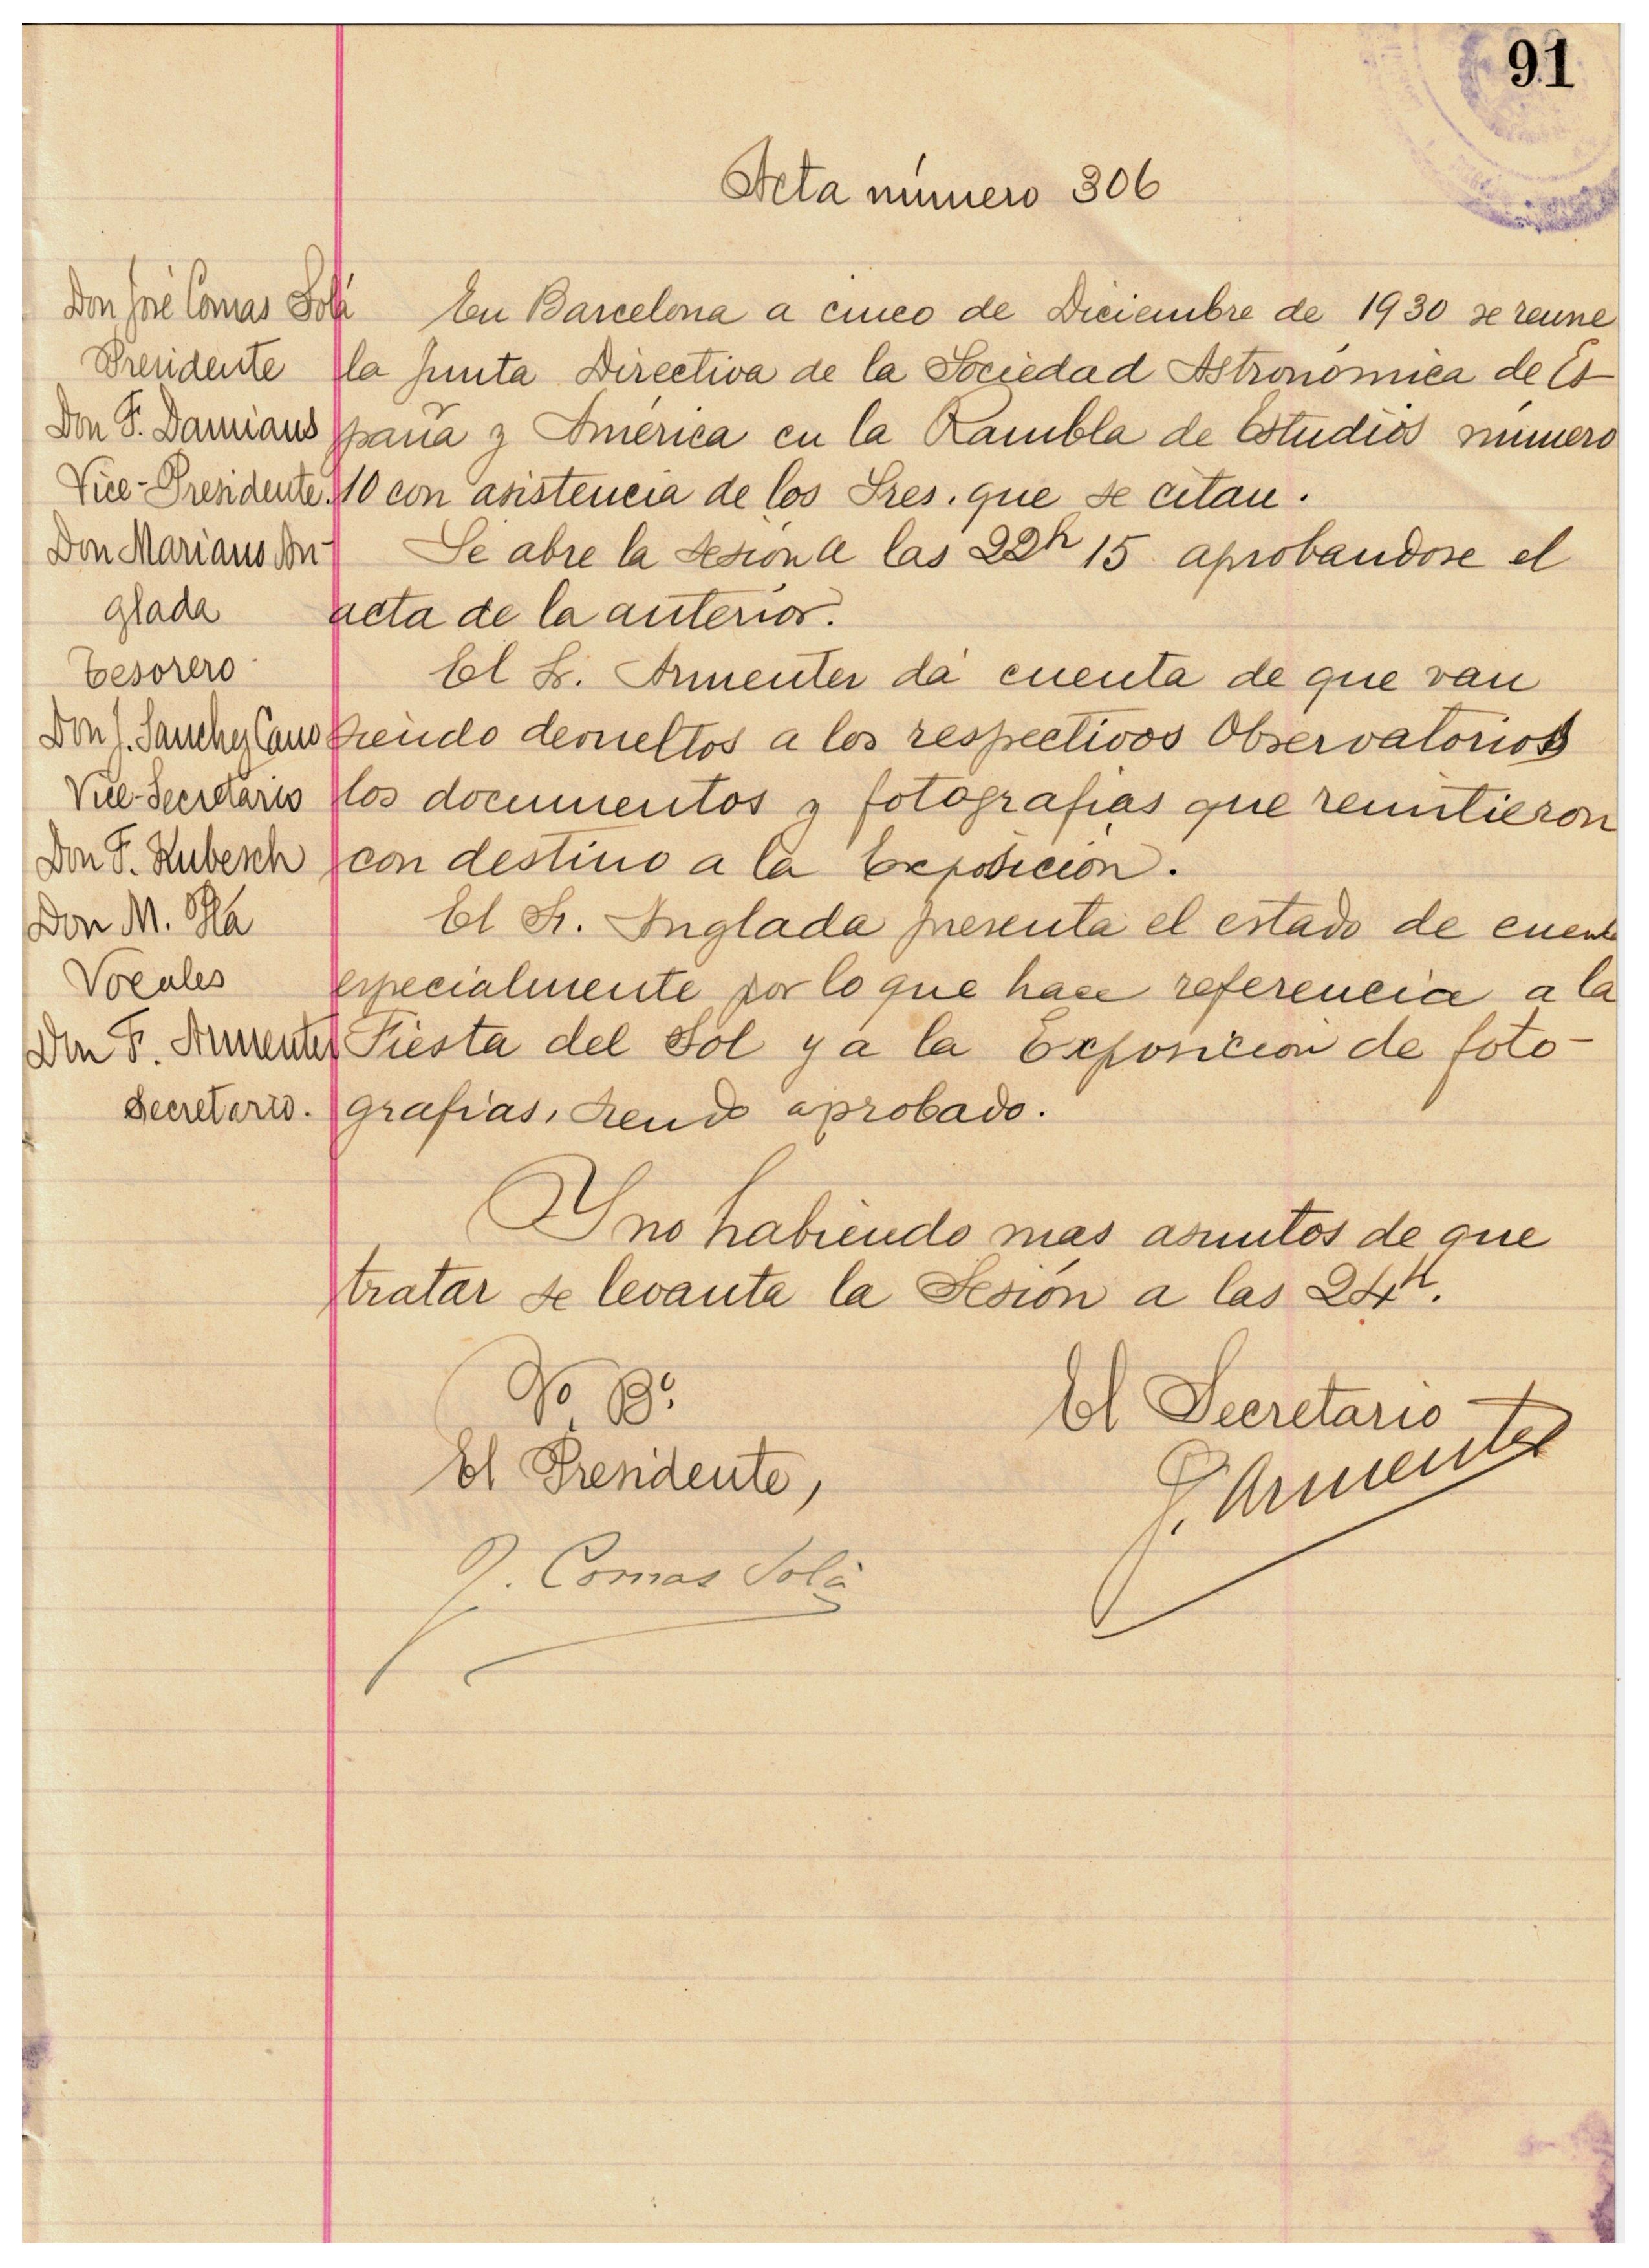 91
Acta número 306
Don José Comas Solá
Presidente
Don F. Damians
Vice-Presidente.
Don Mariano An-
glada
Tesorero
Don J. Sanchez Cano
Vice-Secretario
Don F. Kubesch
Don M. Plá
Vocales
Don F. Armenter
Secretario.
En Barcelona a cinco de Diciembre de 1930 se reune
la Junta Directiva de la Sociedad Astronómica de Es-
paña y América en la Rambla de Estudios número
10 con asistencia de los Sres. que se citan.
Se abre la sesión a las 22h 15 aprobandose el
acta de la anterior.
El Sr. Armenter dá cuenta de que van
siendo devueltos a los respectivos Observatorios
los documentos y fotografías que remitieron
con destino a la Exposición.
El Sr. Anglada presenta el estado de cuenta
especialmente por lo que hace referencia a la
Fiesta del Sol y a la Exposición de foto-
grafías, siendo aprobado.
Y no habiendo mas asuntos de que
tratar se levanta la Sesión a las 24h.
Vo Bo.
El Presidente,
J. Comas Solá
El Secretario
F. Armenter